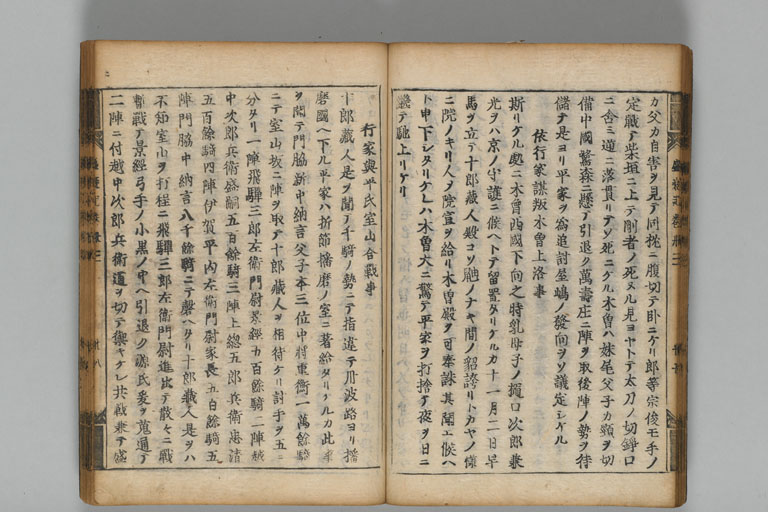 カ父カ自害ヲ見テ同枕ニ腹切テ臥ニケリ郎等宗俊モ手ノ
定戦テ柴垣ニ上テ剛者ノ死ヌル見ヨヤトテ太刀ノ切鋒口
ニ含ミ逆ニ落貫リテソ死ニケル木曽ハ妹尾父子カ頸ヲ切
備中國鷺森ニ懸テ引退ク萬壽庄ニ陣ヲ取後陣ノ勢ヲ待
儲テ是ヨリ平家ヲ為追討屋嶋ノ發向ヲソ議定シケル
依行家謀叛木曽上洛事
斯リケル処ニ木曽西國下向之時乳母子ノ樋口次郎兼
光ヲハ京ノ守護ニ候ヘトテ留置タリケルカ十一月二日早
馬ヲ立テ十郎蔵人殿コソ
ニ院ノキリ人ヲ院宣ヲ給リ木曽殿ヲ可奉誅其聞エ候ヘ
ト申下シタリケレハ木曽大ニ驚テ平家ヲ打捨テ夜ヲ日ニ
継テ馳上リケリ
行家與平氏室山合戦事
十郎蔵人是ヲ聞テ千騎ノ勢ニテ指違テ丹波路ヨリ播
磨國ヘ下ル平家ハ折節播磨ノ室ニ著給タリケルカ此事
ヲ聞テ門脇新中納言父子本三位中将重衡一萬餘騎
ニテ室山坂ニ陣ヲ取テ十郎蔵人ヲ相待ケリ討手ヲ五ニ
分タリ一陣飛騨三郎左衛門尉景経五百餘騎二陣越
中次郎兵衛盛嗣五百餘騎三陣上總五郎兵衛忠清
五百餘騎四陣伊賀平内左衛門尉家長五百餘騎五
陣門脇中納言八千餘騎ニテ磬ヘタリ十郎蔵人是ヲハ
不知室山ヲ打程ニ飛騨三郎左衛門尉進出テ散々ニ戦
暫戦テ景経弓手ノ小黒ノ中ヘ引退ク源氏爰ヲ蒐通テ
二陣ニ付越中次郎兵衛道ヲ切テ禦キケレ共戦兼テ盛